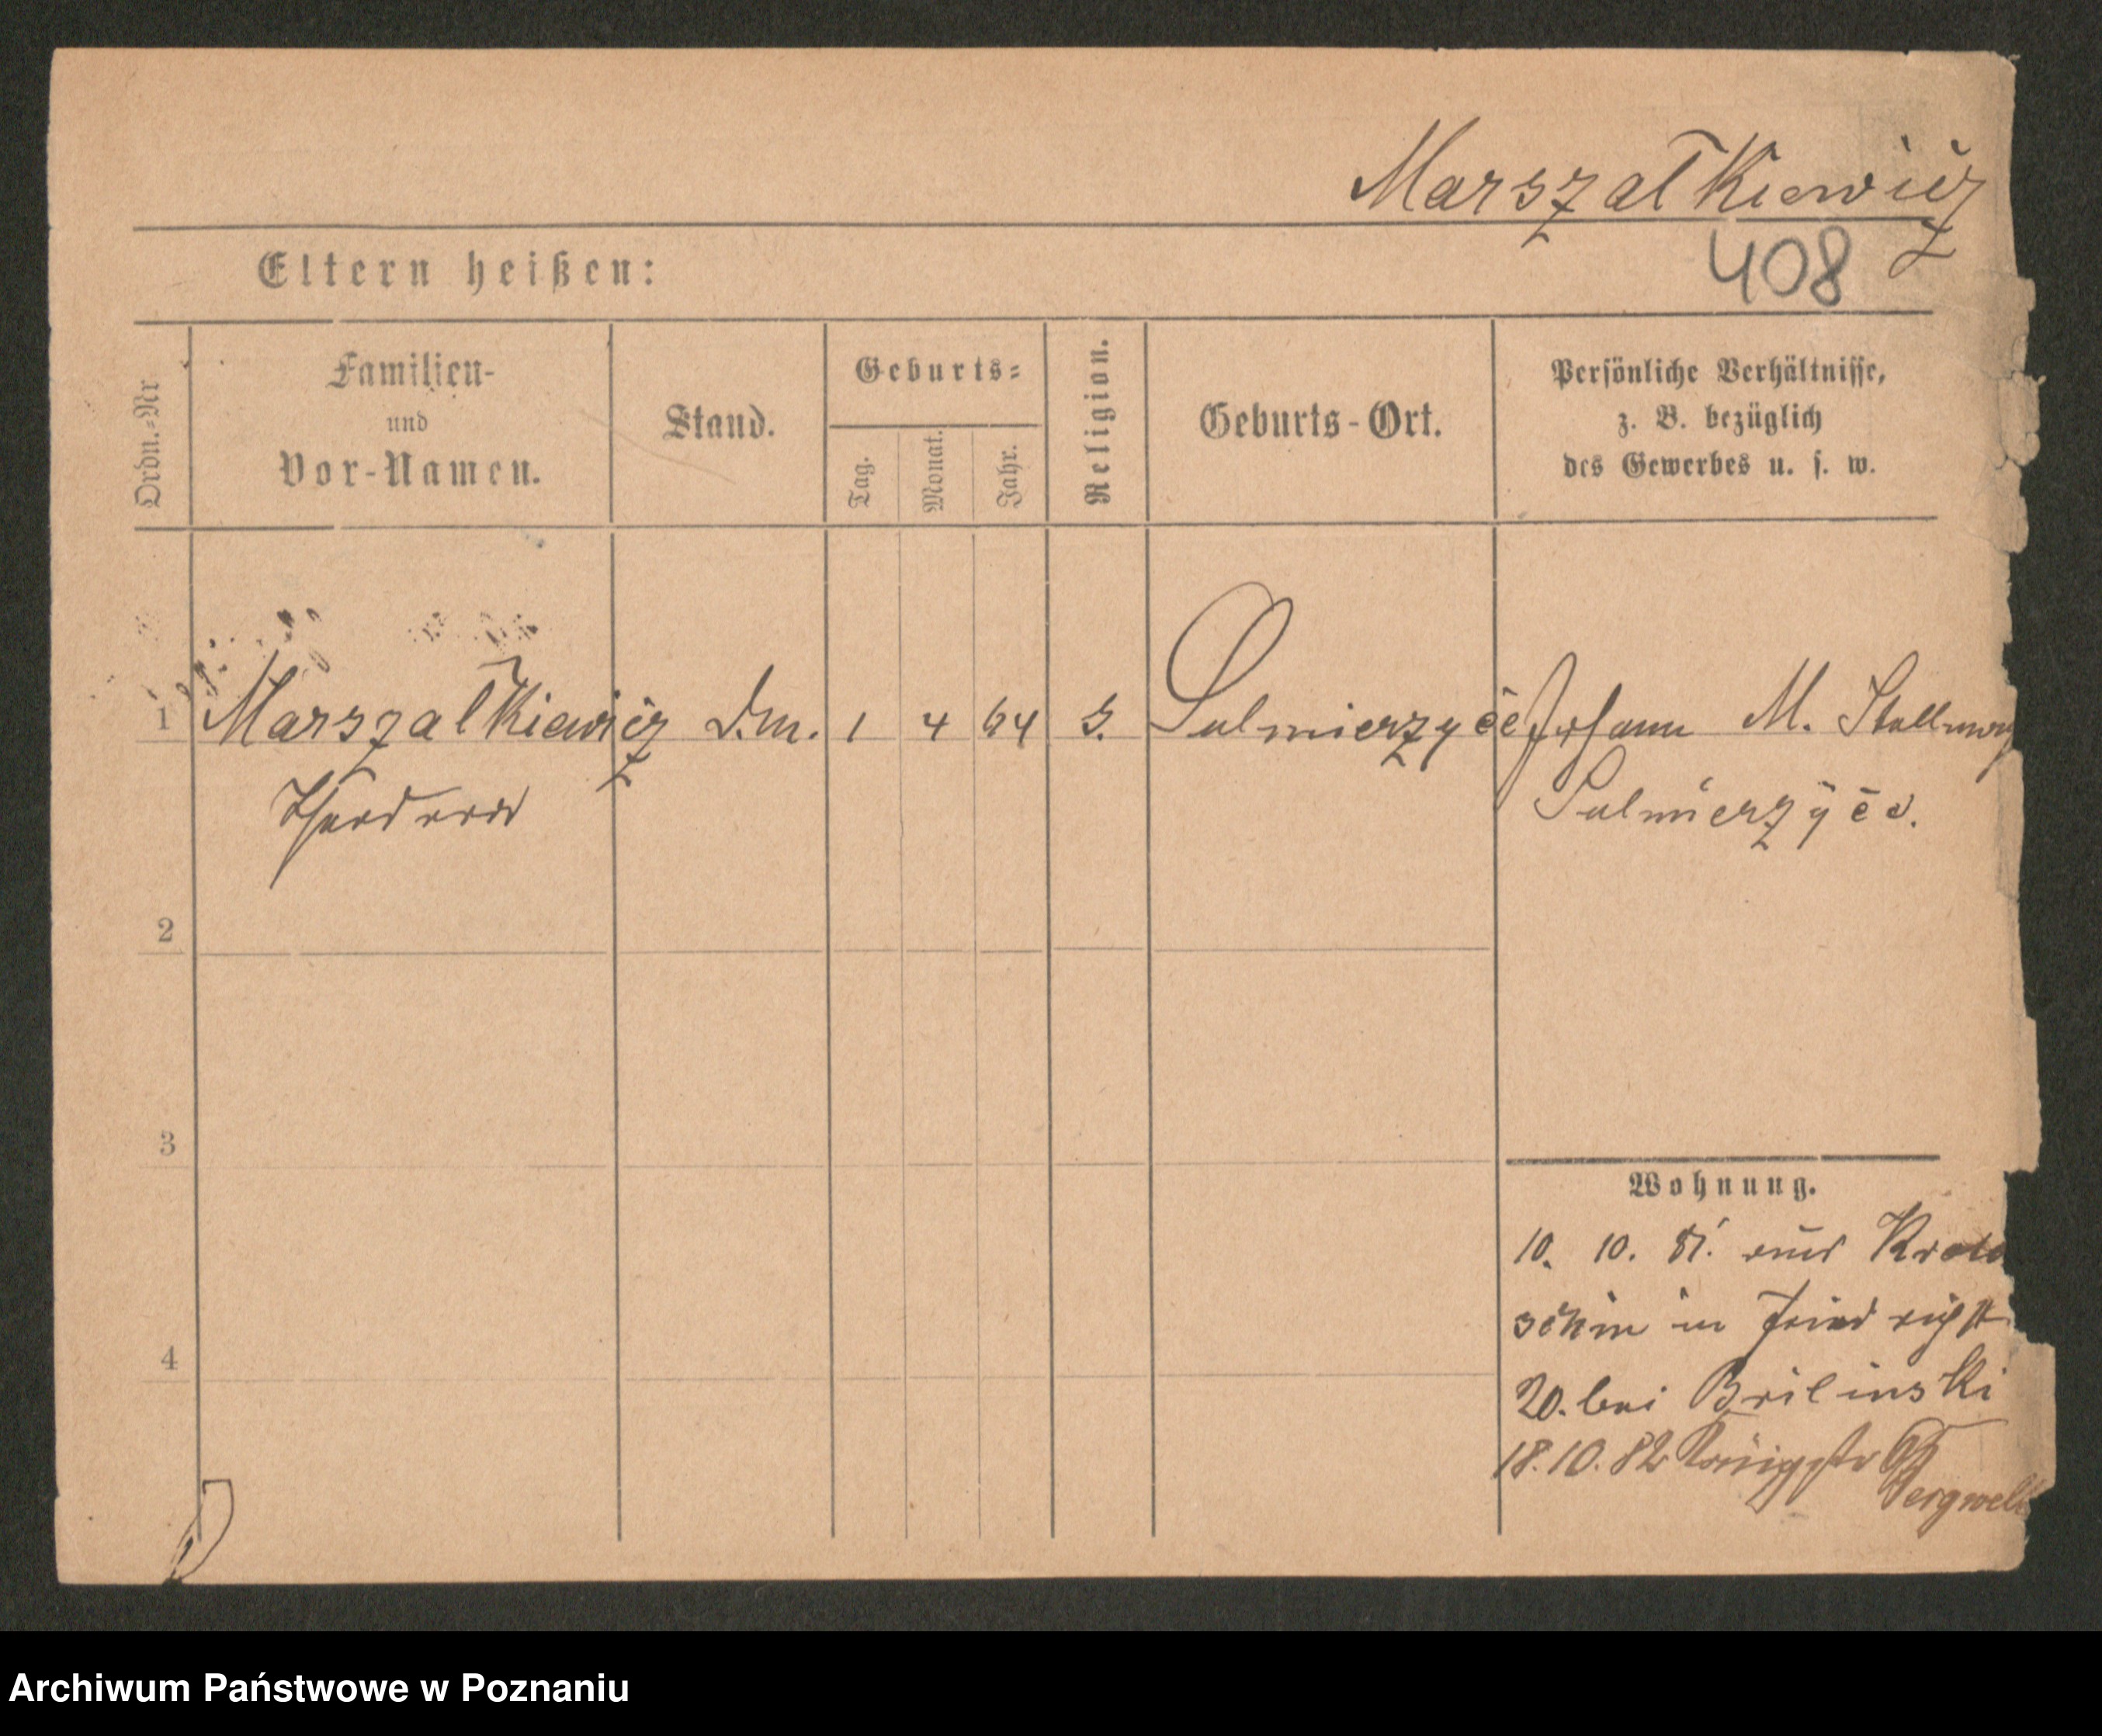 Marszalkiewicz
408
Eltern heißen:
Ordn.-Nr
Familien-
und
Vor-Namen.
Stand.
Geburts-
Tag.
Monat.
Jahr.
Religion.
Geburts-Ort.
Persönliche Verhältnisse,
z. B. bezüglich
des Gewerbes u. s. w.
1 Marszalkiewicz 1 4 64 Sulmierzyce Johann M.
Theodor
Sulmierzyce.
2
3
4
Wohnung.
10. 10. 81. aus Kroto
schin in Friedrichstr
20. bei Brilinski
18.10.82 Königstr
Archiwum Państwowe w Poznaniu